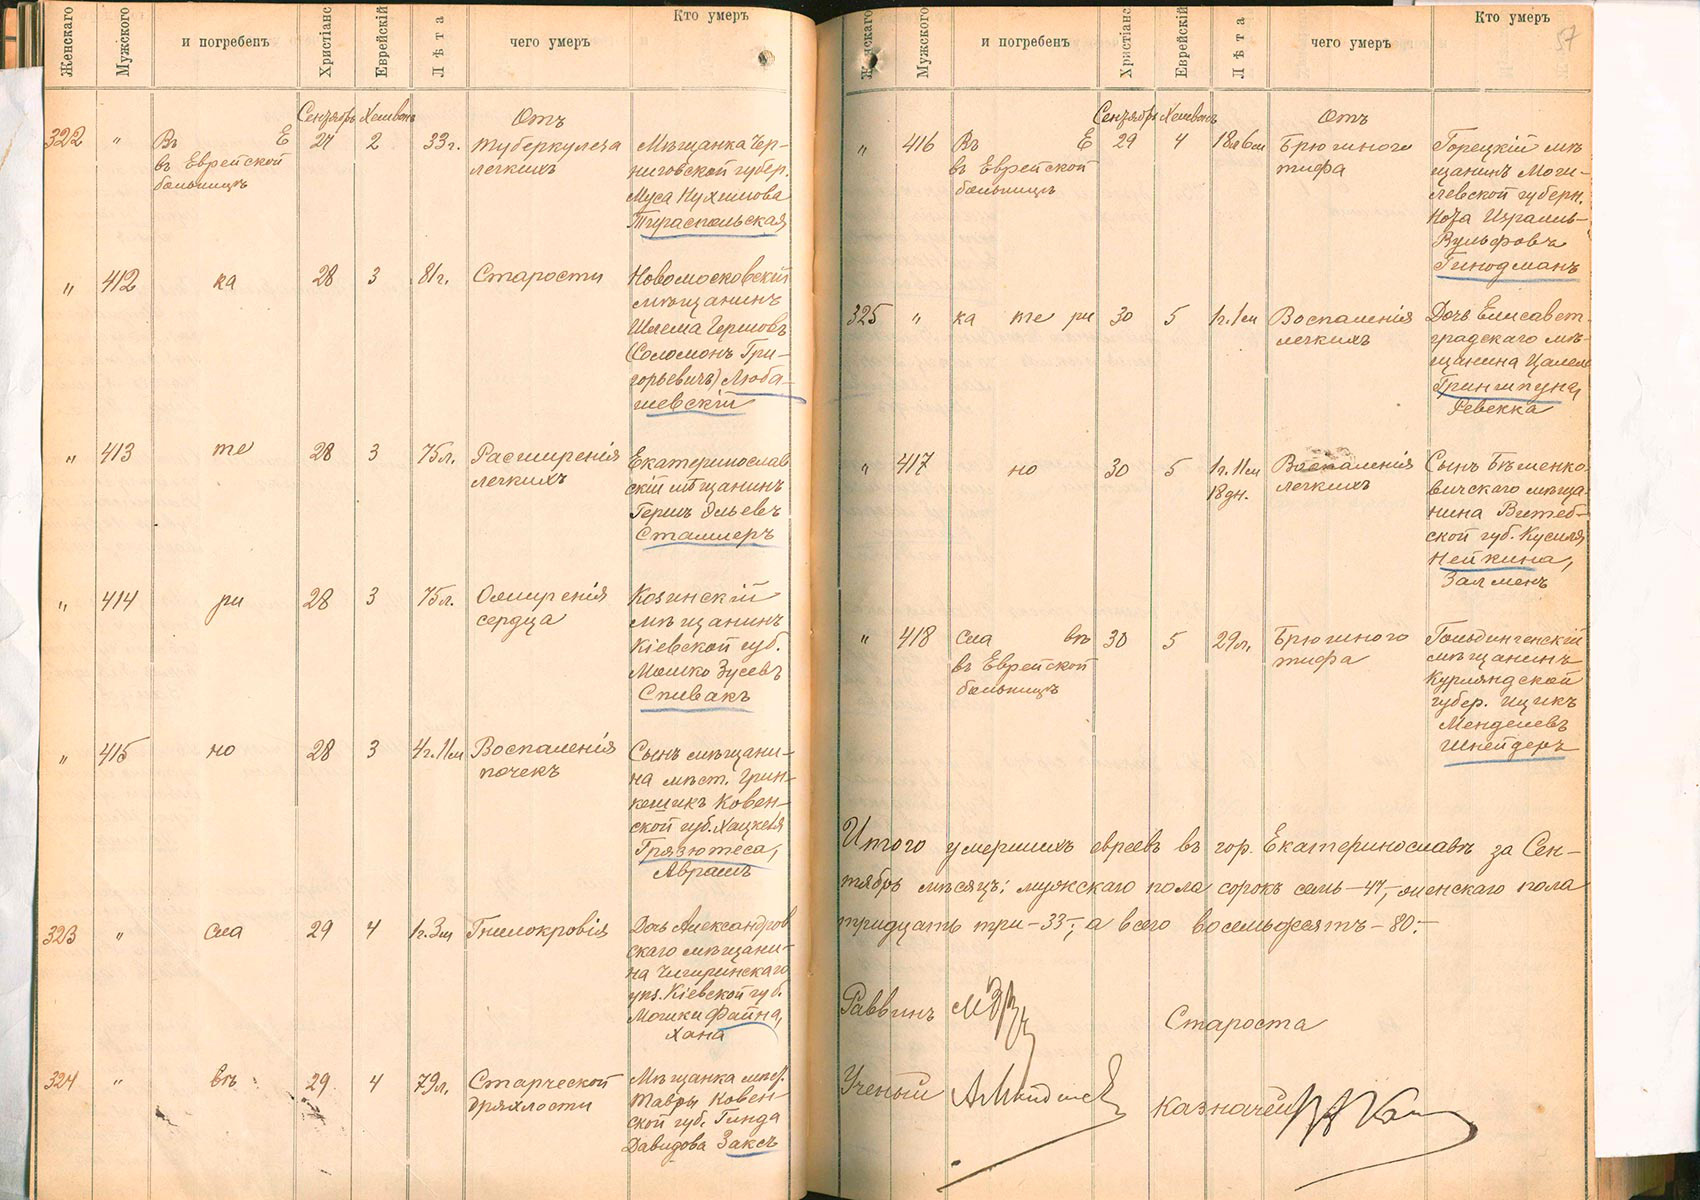 Женскаго
Мужского
и погребенъ
Христіанс
Еврейскій
Лѣта
чего умеръ
Кто умеръ
Сентябрь Хешвонъ
Отъ
322 " Въ Е 27 2 33г. туберкулеза Мѣщанка Чер-
въ Еврейской легкихъ ниговской губер.
больницѣ Муса Нухимова
Тираспольская
" 412 ка 28 3 81г. Старости Новомосковскій
мѣщанинъ
Шлема Гершовъ
(Соломонъ Гри-
горьевичъ) Люба-
шевскій
" 413 те 28 3 75л. Расширенія Екатеринослав
легкихъ скій мѣщанинъ
Гершъ Эльевъ
Сташлеръ
" 414 ри 28 3 75л. Ожиренія Козинскій
сердца мѣщанинъ
Кіевской губ.
Мошко Зусевъ
Спивакъ
" 415 но 28 3 4г.11м Воспаленія Сынъ мѣщани-
почекъ на мѣст. Грин-
кешикъ Ковен-
ской губ. Хацкеля
Грязютеса,
Абрамъ
323 " сла 29 4 1г.3м Гнилокровія Дочь Александров
скаго мѣщани-
на Чигиринскаго
уѣз. Кіевской губ.
Мошки Файна,
Хана
324 " вѣ 29 4 79л. Старческой Мѣщанка мѣст.
дряхлости Тавры Ковен
ской губ. Гинда
Давидова Заксъ
57
Женскаго
Мужского
и погребенъ
Христіанс
Еврейскій
Лѣта
чего умеръ
Кто умеръ
Сентябрь Хешвонъ
Отъ
" 416 Въ Е 29 4 18л6м Брюшного Горецкій мѣ
въ Еврейской тифа щанинъ Моги-
больницѣ левской губерн.
Нота Израиль-
Вульфовъ
Гинодманъ
325 " ка те ри 30 5 1г.1м Воспаленія Дочь Елисавет-
легкихъ градскаго мѣ-
щанина Цалеля
Гриншпуна,
Ревекка
" 417 но 30 5 1г.11м Воспаленія Сынъ Бѣшенко-
18дн. легкихъ вичскаго мѣща-
нина Витеб-
ской губ. Кусиля
Нейкина,
Залменъ
" 418 сла вѣ 30 5 29л. Брюшного Гольдингенскій
въ Еврейской тифа мѣщанинъ
больницѣ Курляндской
губер. Ицикъ
Менделевъ
Шнейдеръ
Итого умершихъ евреевъ въ гор. Екатеринославѣ за Сен-
тябрь мѣсяцъ: мужскаго пола сорокъ семь-47,-женскаго пола
тридцать три-33-; а всего восемьдесятъ-80.-
Раввинъ
Староста
Ученый
Казначей